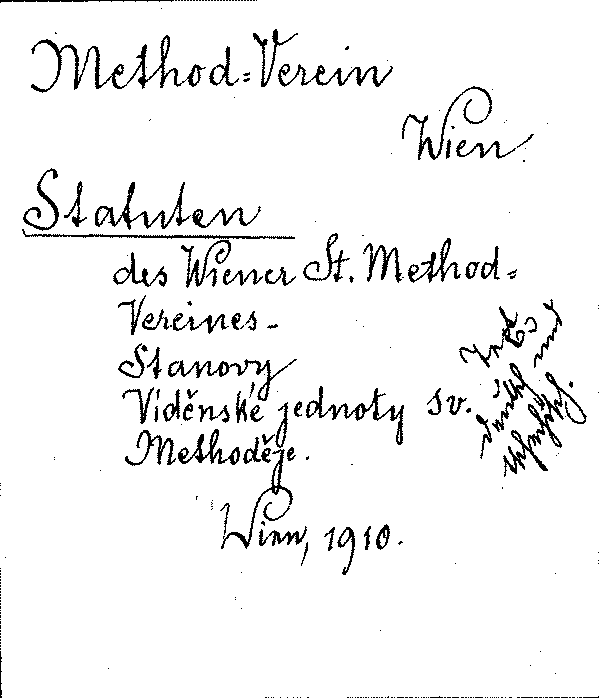 Method=Verein
Wien.
Statuten
des Wiener St. Method=
Vereines-
Stanovy
Vídeňské jednoty sv.
Methoděje.
Wien, 1910.
Text
deutsch und
tschechisch.